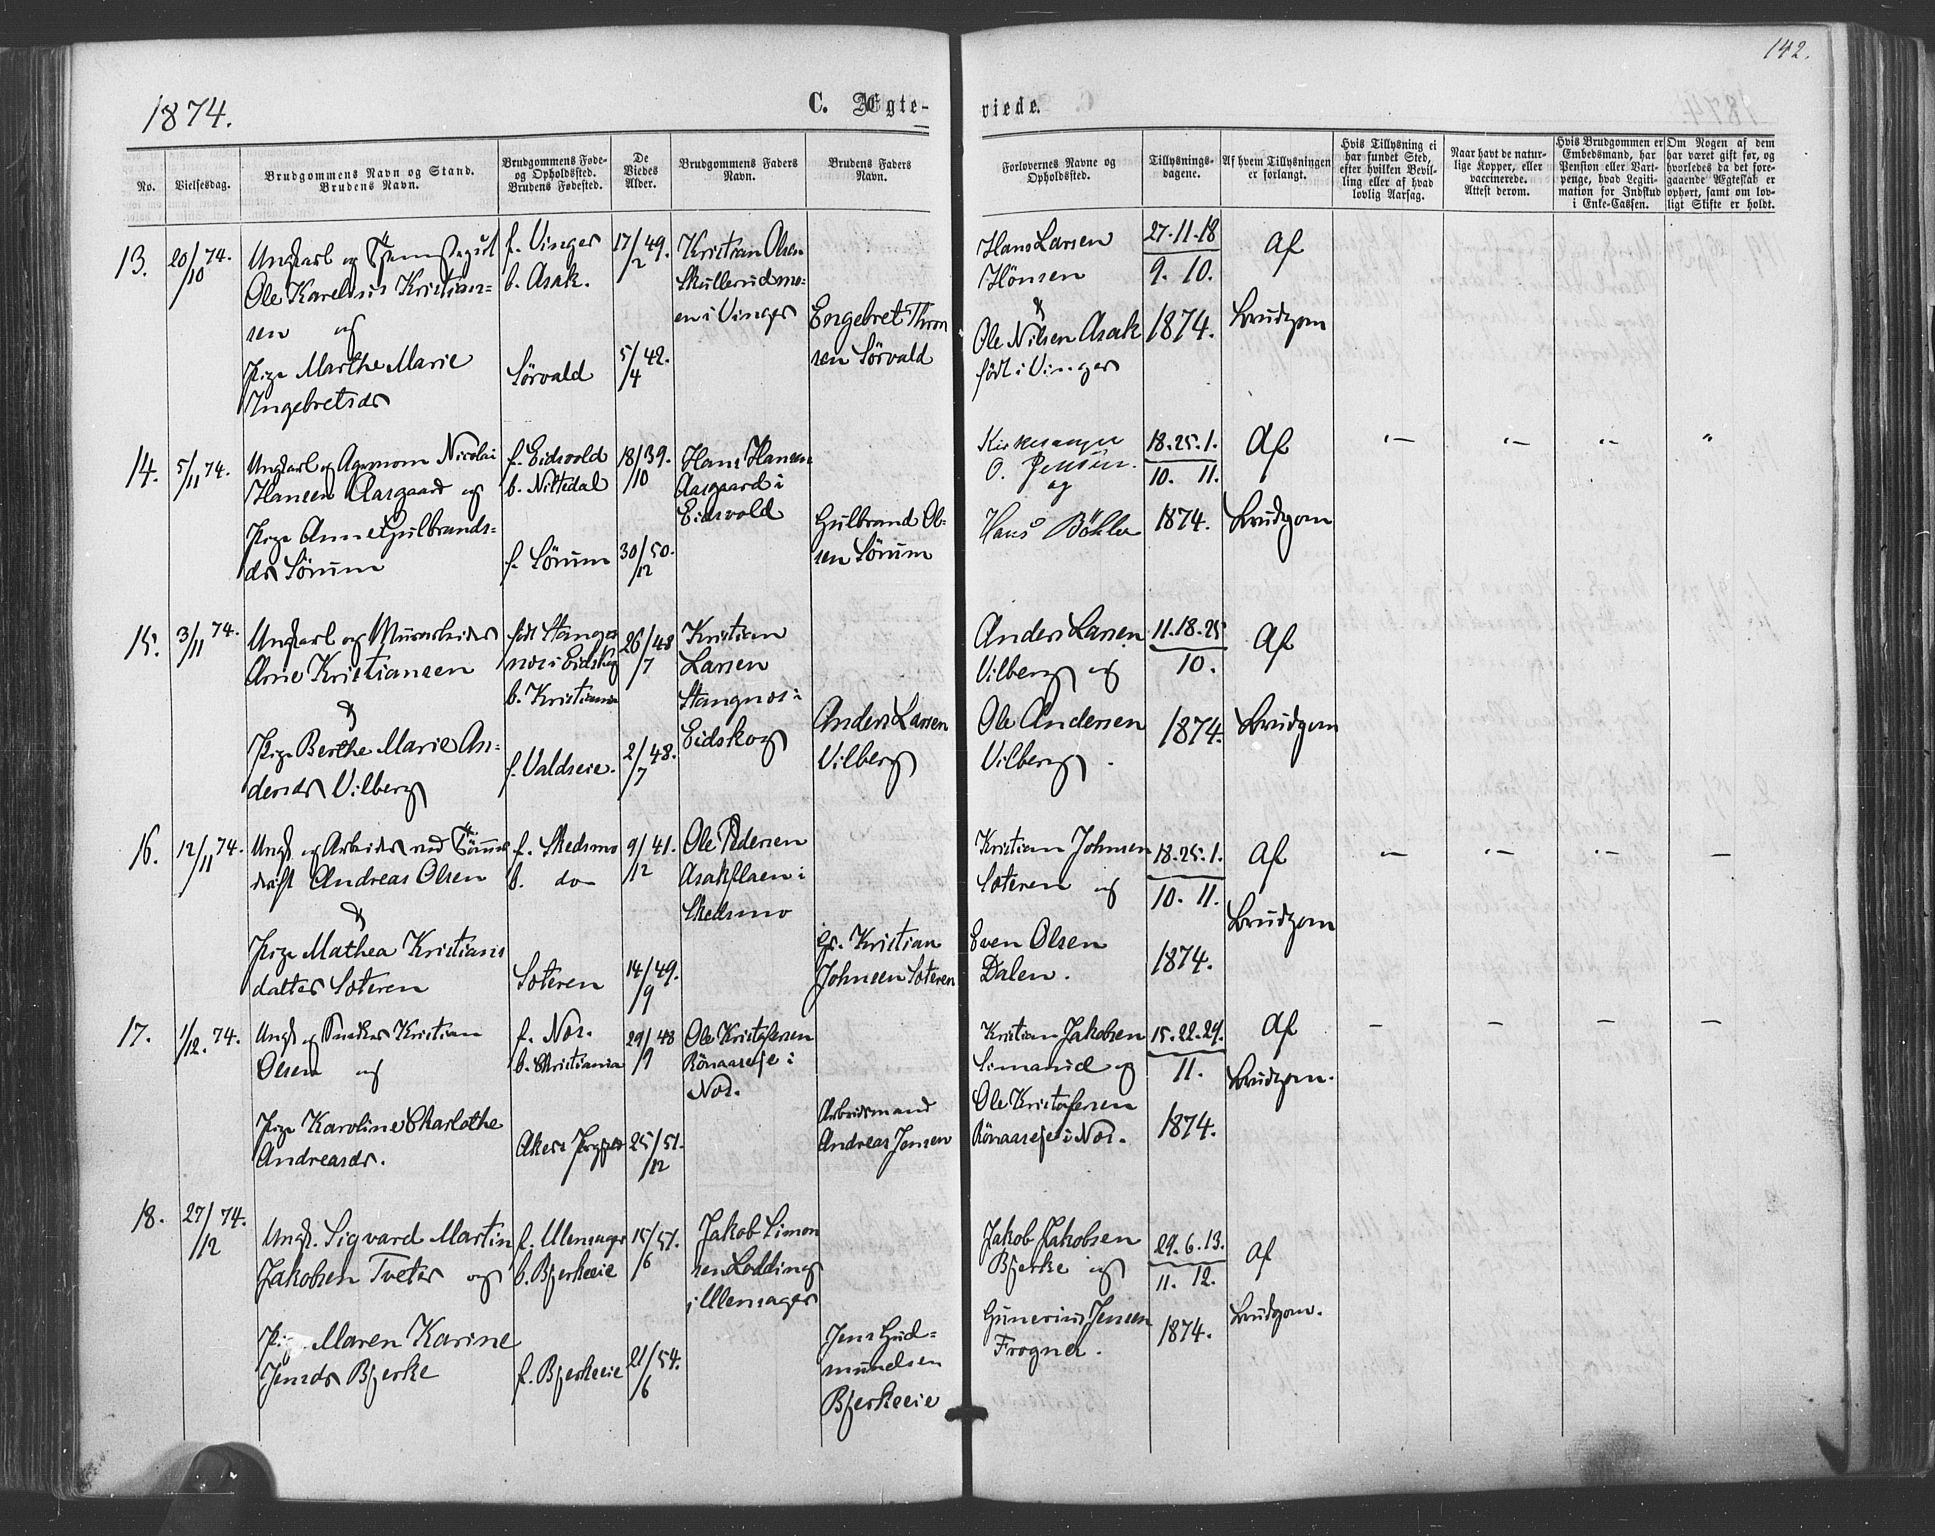 142.
1874.
C. Ægte-
viede.
No.
Vielsesdag.
Brudgommens Navn og Stand.
Brudens Navn.
Brudgommens Føde-
og Opholdsted.
Brudens Fødested.
De
Viedes
Alder.
Brudgommens Faders
Navn.
Brudens Faders
Navn.
Forlovernes Navne og
Opholdsted.
Tillysnings-
dagene.
Af hvem Tillysningen
er forlangt.
Hvis Tillysning ei
har fundet Sted,
efter hvilken Bevil-
ling eller af hvad
lovlig Aarsag.
Naar havt de natur-
lige Kopper, eller
vaccinerede.
Attest derom.
Hvis Brudgommen er
Embedsmand, har
Pension eller Vart-
penge, hvad Legiti-
mation for Indskud
i Enke-Cassen.
Om Nogen af dem
har været gift før, og
hvorledes da det fore-
gaaende Ægteskab er
ophørt, samt om lov-
ligt Skifte er holdt.
13.
20/10 74.
Ungkarl og
Ole Karelius Kristian-
sen og
Pige Marthe Marie
Ingebretsdr
f. Vinger
b. Asak.
Sörvald
17/2 49.
5/4 42.
Kristian Olsen
Skullerudmo-
en i Vinger
Engebret Thron
sen Sörvald
Hans Larsen
Hönsen
&
Ole Nilsen Asak
födt i Vinger
27.11.18
9. 10.
1874.
Af
Brudgom
14.
5/11 74.
Ungkarl og Agronom Nicolai
Hansen Aasgaard og
Pige Anne Gulbrands-
dr Sörum
f. Eidsvold
b. Nittedal
f. Sörum
18/10 39.
30/12 50.
Hans Hansen
Aasgaard i
Eidsvold
Gulbrand Ol-
sen Sörum
Kirkesanger
O. Jensen.
og
Hans Böhler
18.25.1.
10. 11.
1874.
Af
Brudgom
15.
3/11 74.
Ungkarl og Murarbeider
Arne Kristiansen
&
Pige Berthe Marie An-
dersdr Vilberg
född Stangnes
i Eidskog
b. Kristiania
f. Valdseie.
26/7 48
2/7 48.
Kristian
Larsen
Stangnes i
Eidskog
Anders Larsen
Vilberg
Anders Larsen
Vilberg og
Ole Andersen
Vilberg.
11.18.25
10.
1874.
Af
Brudgom
16.
12/11 74.
Ungk. og Arbeider ved Tömmer
drift Andreas Olsen
&
Pige Mathea Kristians
datter Soteren
f. Skedsmo
b. do
Soteren
9/12 41.
14/9 49.
Ole Pedersen
Asakflaen i
Skedsmo
Kristian
Johnsen Soteren
Kristian Johnsen
Soteren og
Even Olsen
Dalen.
18.25.1.
10. 11.
1874.
Af
Brudgom
17.
1/12. 74.
Ungk. og Snedker Kristian
Olsen og
Pige Karoline Charlothe
Andreasdr.
f. Nes.
b. Christiania
Akers
29/9 48
25/12 51.
Ole Kristofersen
Rönaaseje i
Nes.
Arbeidsmand
Andreas Jensen
Kristian Jakobsen
Limarud og
Ole Kristofersen
Rönaaseje i Nes.
15.22.29.
11.
1874.
Af
Brudgom.
18.
27/12 74.
Ungk. Sigvard Martin
Jakobsen Tveter og
Pige Maren Karine
Jensdr Bjerke
f. Ullensager
b. Bjerkeeie
f. Bjerkeeie
15/6 51.
21/6 54.
Jakob Simon
sen Lodding
i Ullensager
Jens Gud-
mundsen
Bjerkeeie
Jakob Jakobsen
Bjerke og
Gunerius Jensen
Frogner.
29.6.13.
11. 12.
1874.
Af
Brudgom.